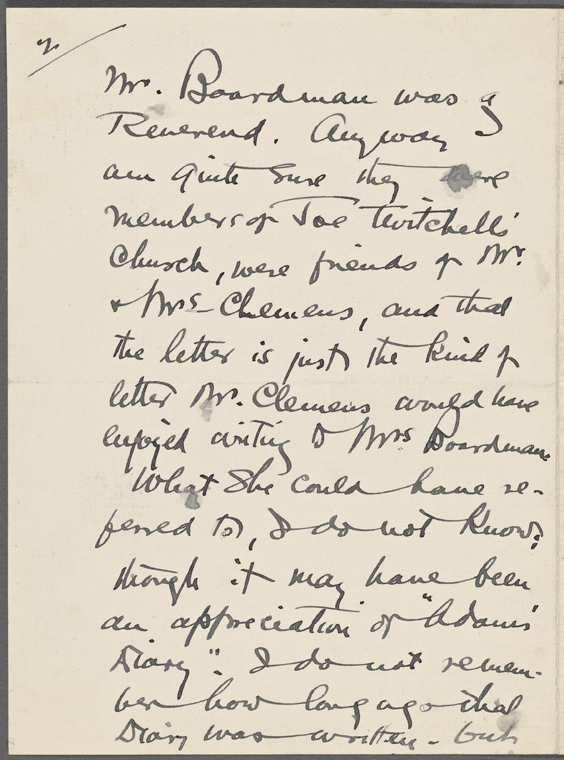 2/
Mr. Boardman was a
Reverend. Anyway I
am quite sure they were
members of Joe Twitchells'
Church, were friends of Mr.
& Mrs. Clemens, and that
the letter is just the kind of
letter Mr. Clemens would have
enjoyed writing to Mrs Boardman.
What she could have re-
ferred to, I do not know;
though it may have been
an appreciation of "Adam's
Diary". I do not remem-
ber how long ago that
Diary was written - but